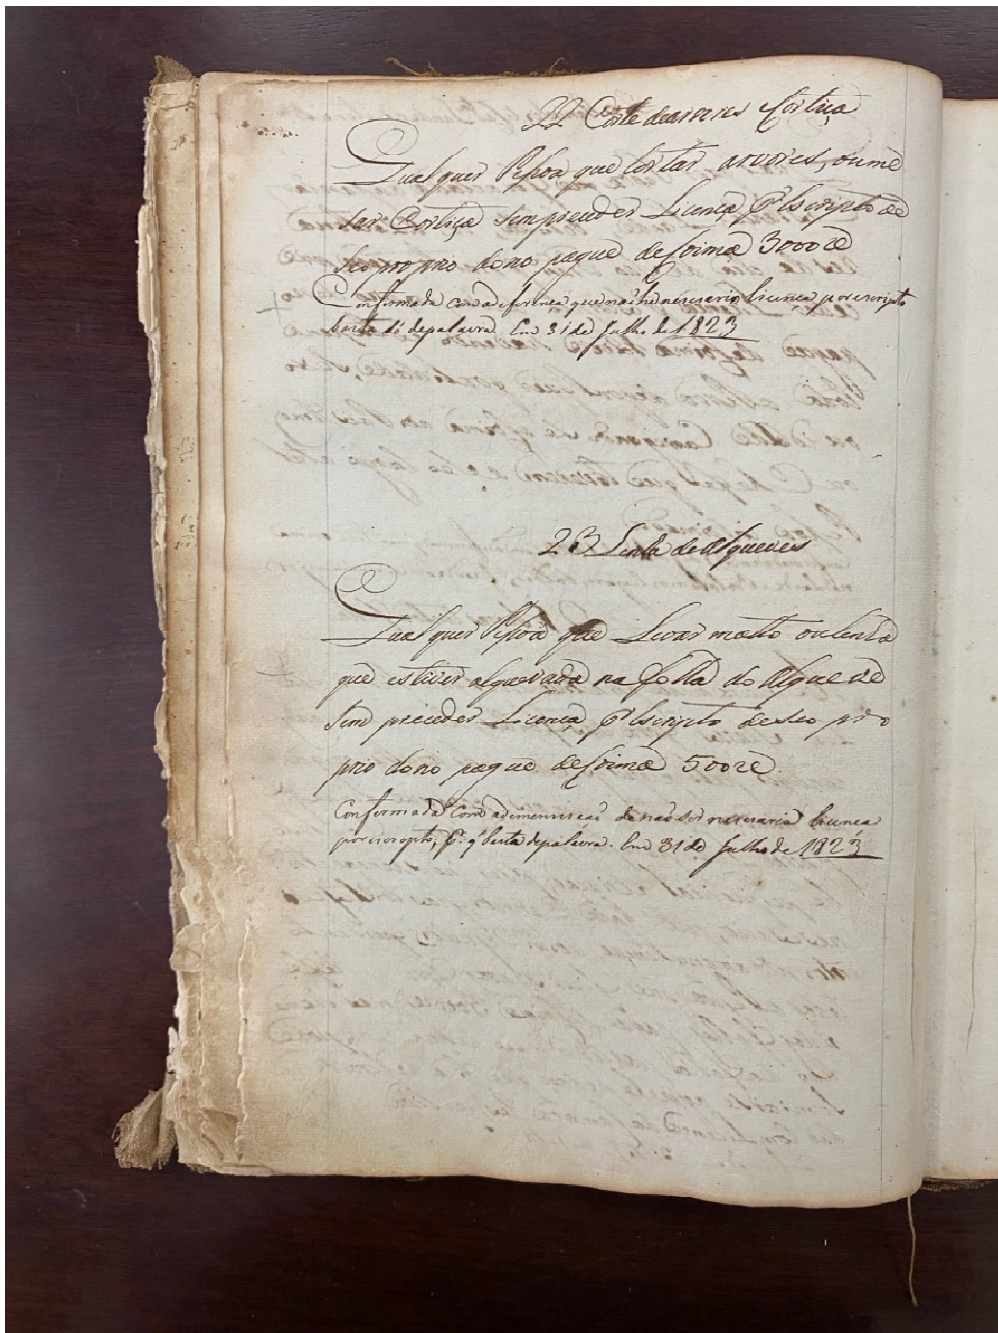 22 Corte de arvores Cortiça
Qualquer Pesoa que Cortar arvores, ou me
sar Cortiça sem preceder Licença pr Escripto de
seo proprio dono pague de Coima 3000 rs
Confirmada com a diferença que não hé necessario licença por escripto
basta só de palavra. Em 31 de Julh. de 1823
23 Lenha de Alqueves
Qualquer Pesoa que Levar matto ou lenha
que estiver alquevada na folha do Alqueve
sem preceder Licença pr Escripto de seo pro
prio dono pague de Coima 500 rs
Confirmada com a de não ser necesaria licença
por escripto, pr. q basta de palavra. Em 31 de Julho de 1823